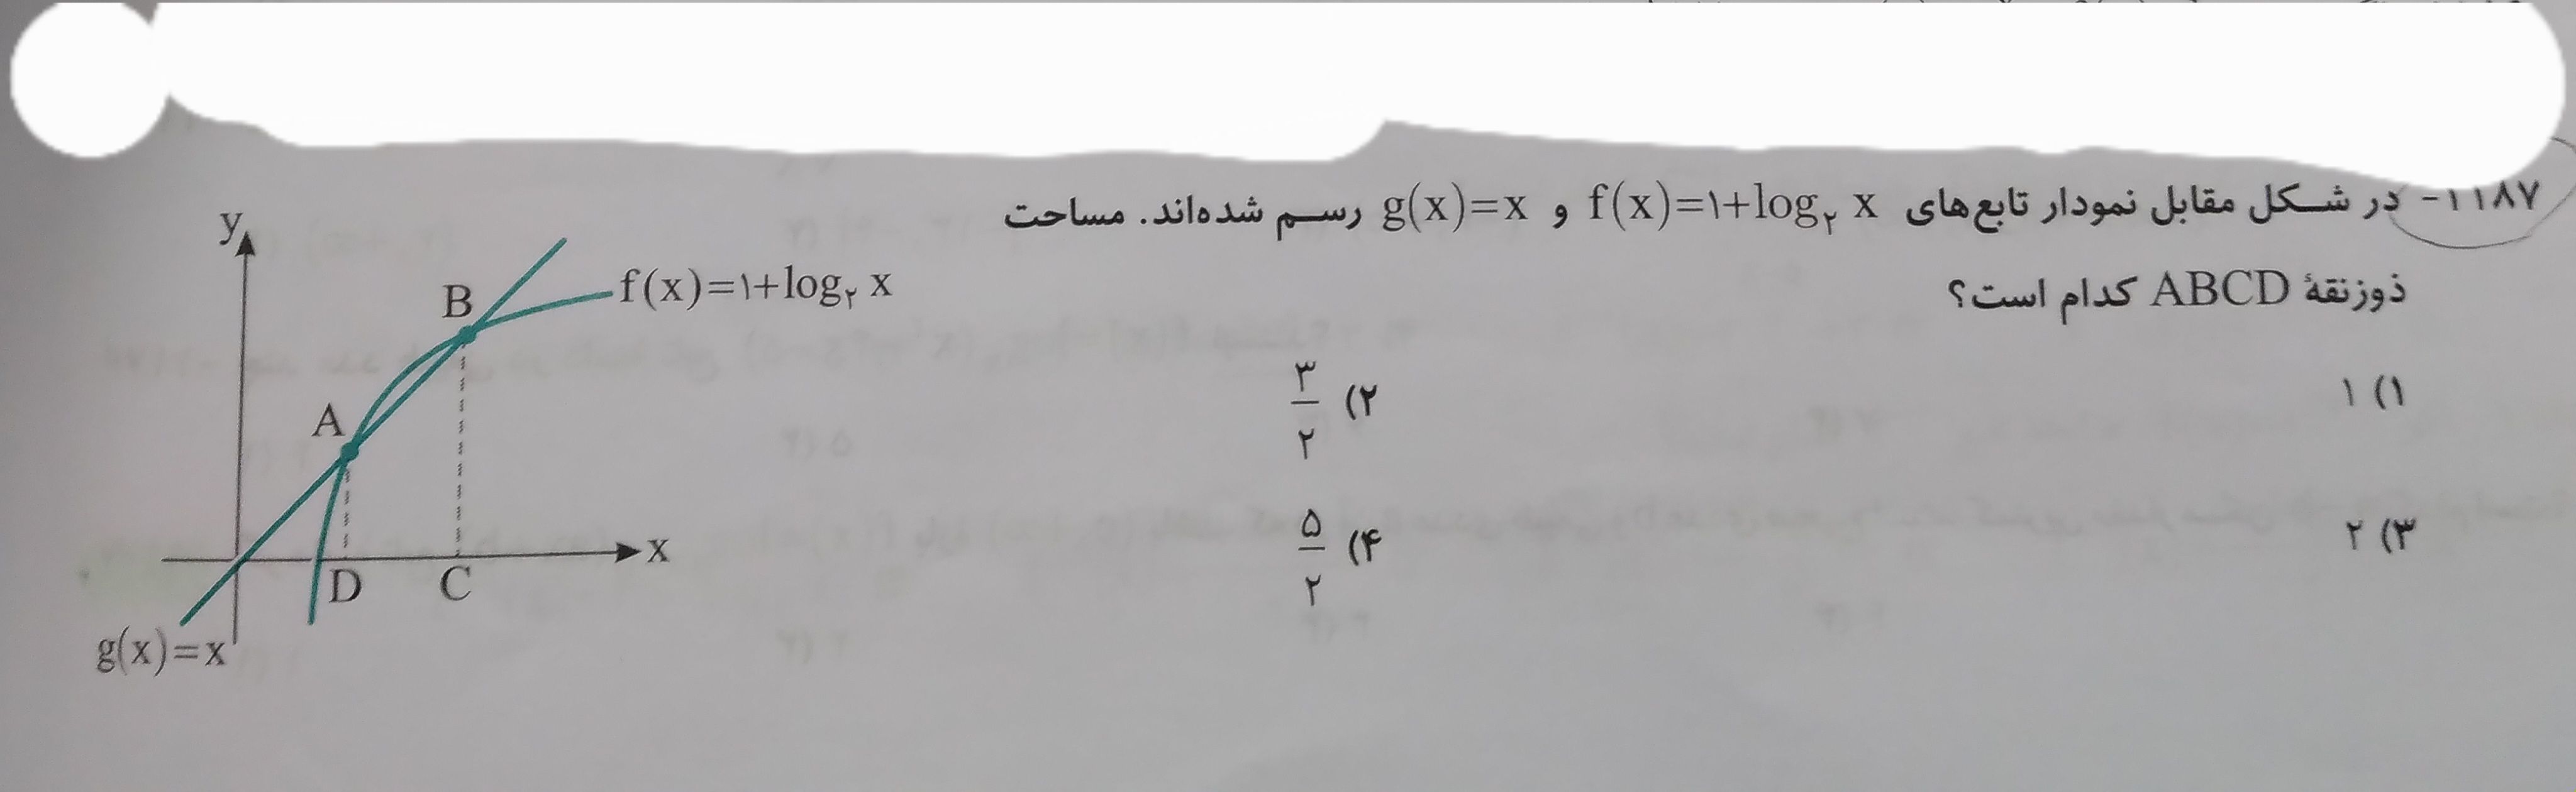 ۱۱۸۷- در شکل مقابل نمودار تابع‌های f(x)=۱+log۲ x و g(x)=x رسم شده‌اند. مساحت
ذوزنقهٔ ABCD کدام است؟
۱) ۱
۲) ۳/۲
۳) ۲
۴) ۵/۲
y
B
f(x)=۱+log۲ x
A
x
D C
g(x)=x